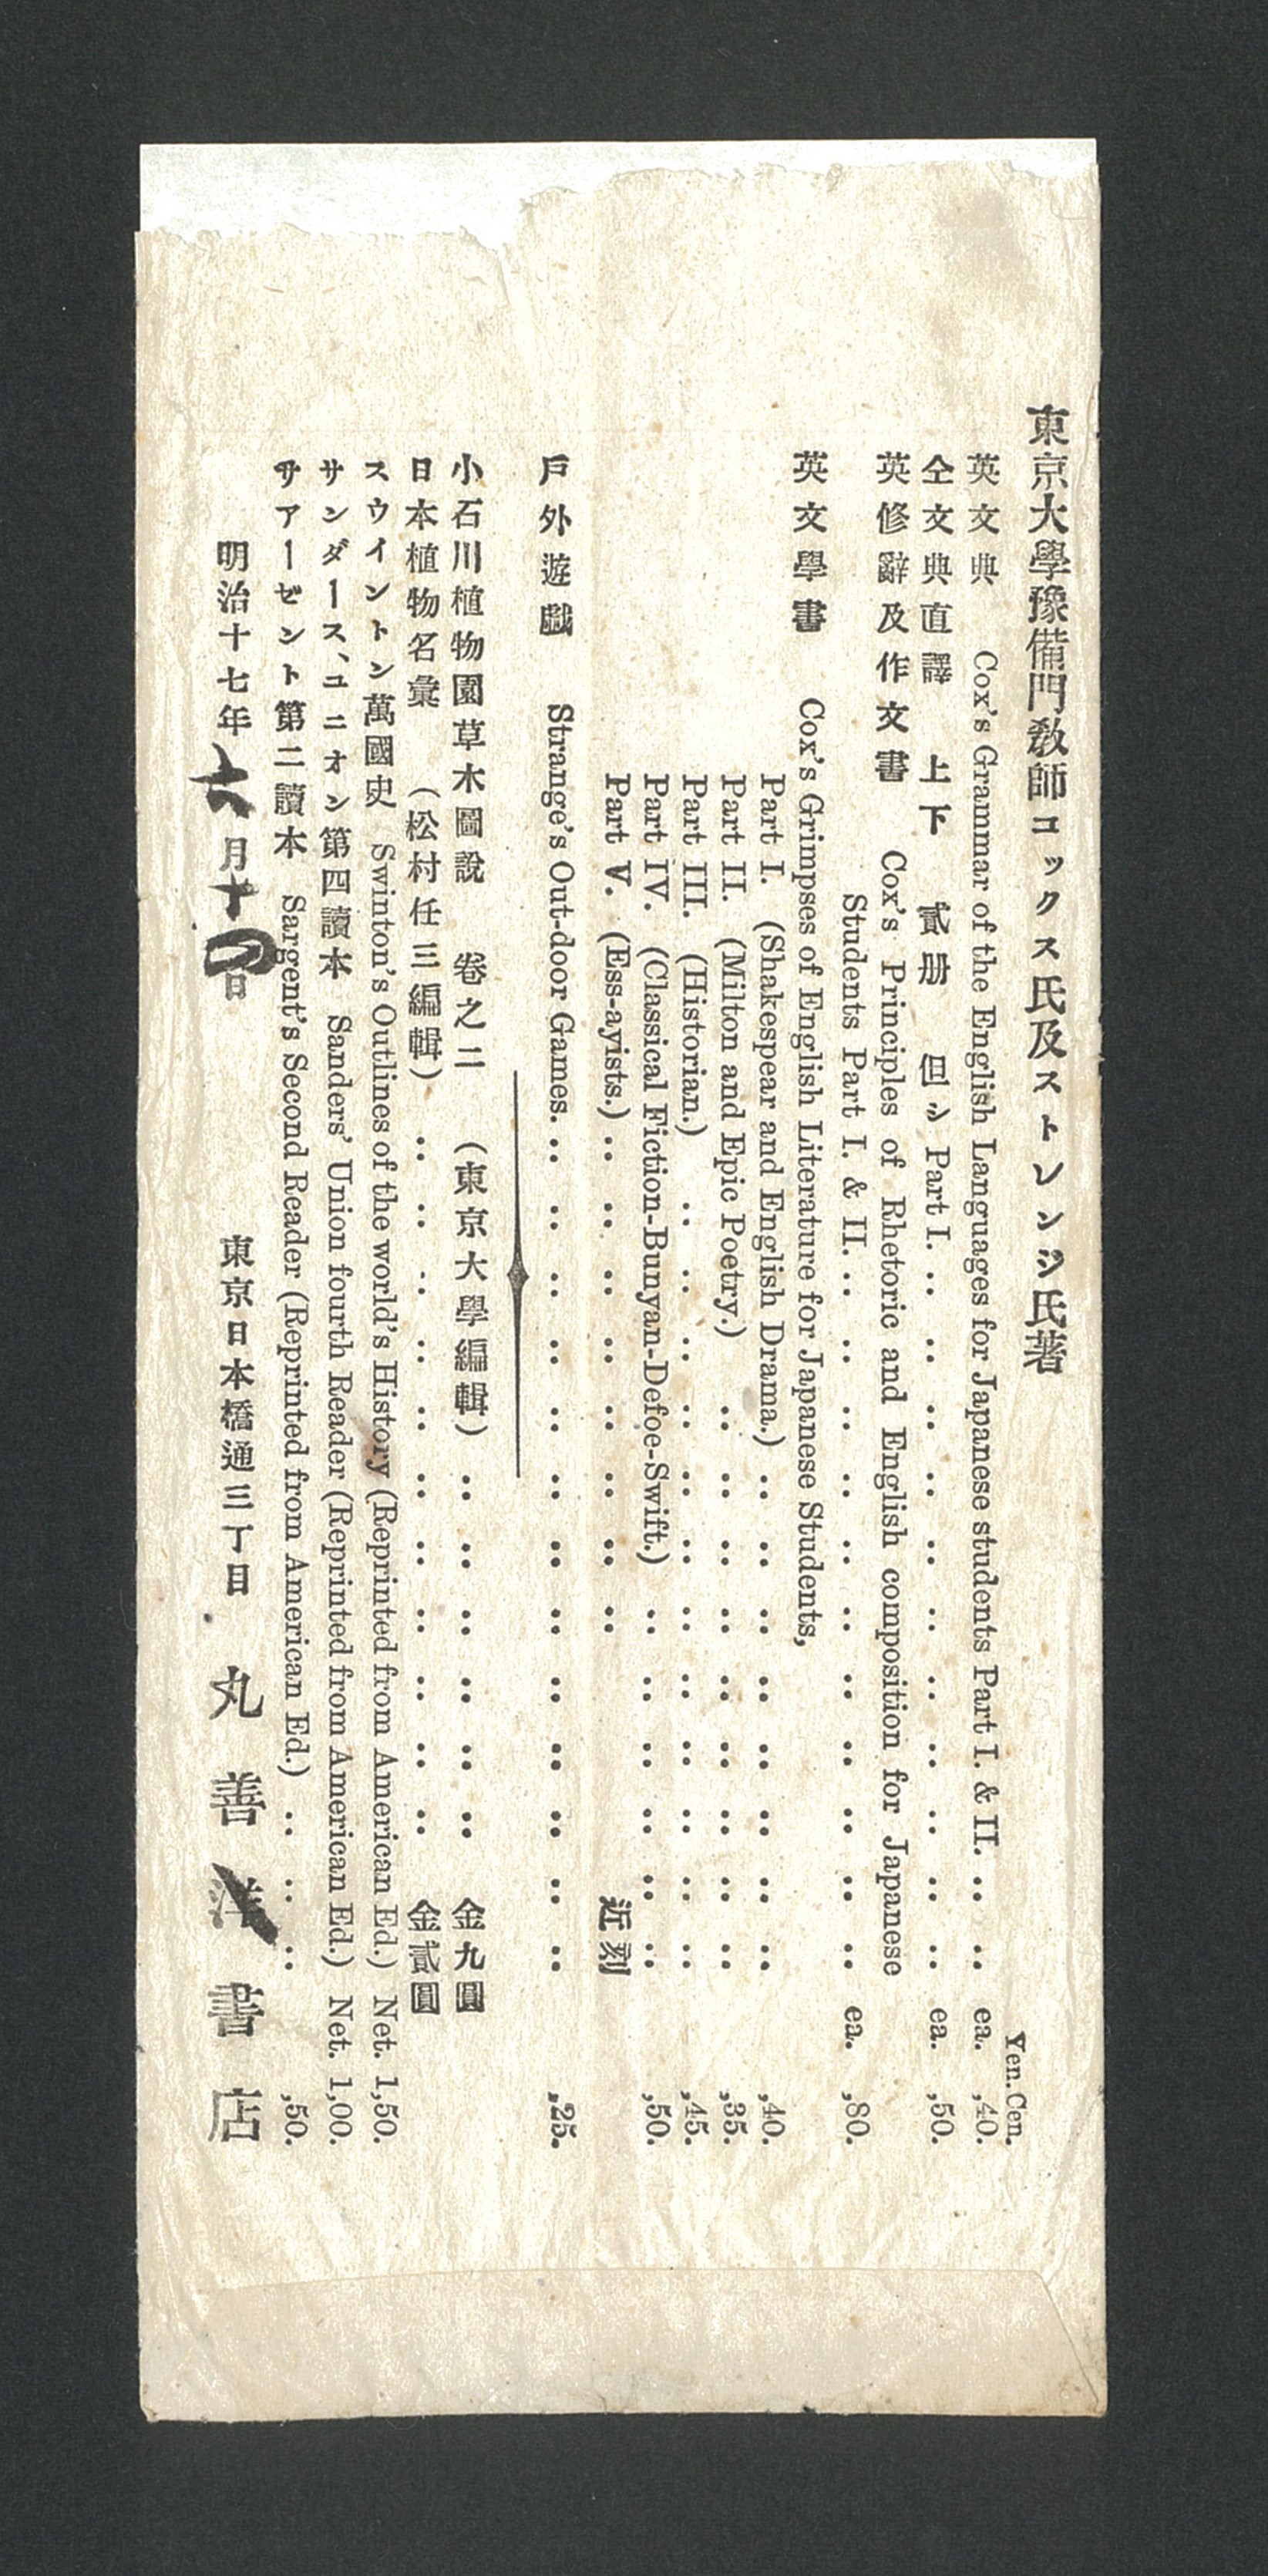 東京大學豫備門敎師コックス氏及ストレンジ氏著
Yen. Cen.
英文典 Cox's Grammar of the English Languages for Japanese students Part I. & II. .. .. ea. ,40.
仝文典直譯 上下 貳册 但シ Part I. .. .. .. .. .. .. .. .. .. .. .. ea. ,50.
英修辭及作文書 Cox's Principles of Rhetoric and English composition for Japanese
Students Part I. & II. .. .. .. .. .. .. .. .. .. .. .. ea. ,80.
英文學書 Cox's Grimpses of English Literature for Japanese Students,
Part I. (Shakespear and English Drama.) .. .. .. .. .. .. .. .. ,40.
Part II. (Milton and Epic Poetry.) .. .. .. .. .. .. .. .. .. ,35.
Part III. (Historian.) .. .. .. .. .. .. .. .. .. .. .. .. ,45.
Part IV. (Classical Fiction-Bunyan-Defoe-Swift.) .. .. .. .. .. .. ,50.
Part V. (Ess-ayists.) .. .. .. .. .. .. .. .. 近刻
戶外遊戲 Strange's Out-door Games. .. .. .. .. .. .. .. .. .. .. .. .. .. ,25.
小石川植物園草木圖說 卷之二 (東京大學編輯) .. .. .. .. .. .. 金九圓
日本植物名彙 (松村任三編輯) .. .. .. .. .. .. .. .. .. .. .. 金貳圓
スウイントン萬國史 Swinton's Outlines of the world's History (Reprinted from American Ed.) Net. 1,50.
サンダース、ユニオン第四讀本 Sanders' Union fourth Reader (Reprinted from American Ed.) Net. 1,00.
サアーゼント第二讀本 Sargent's Second Reader (Reprinted from American Ed.) .. .. .. ,50.
明治十七年六月十四日 東京日本橋通三丁目 丸善洋書店